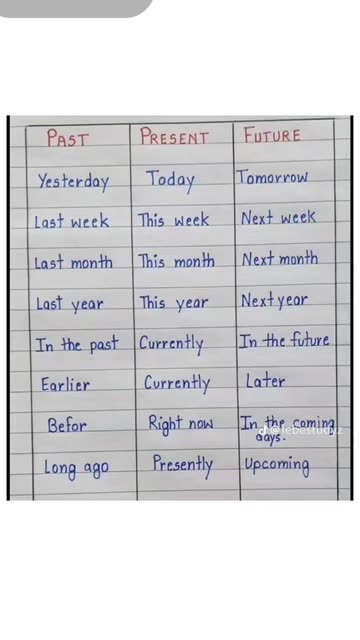 PAST PRESENT FUTURE
Yesterday Today Tomorrow
Last week This week Next week
Last month This month Next month
Last year This year Next year
In the past Currently In the future
Earlier Currently Later
Befor Right now In the coming
days.
Long ago Presently Upcoming